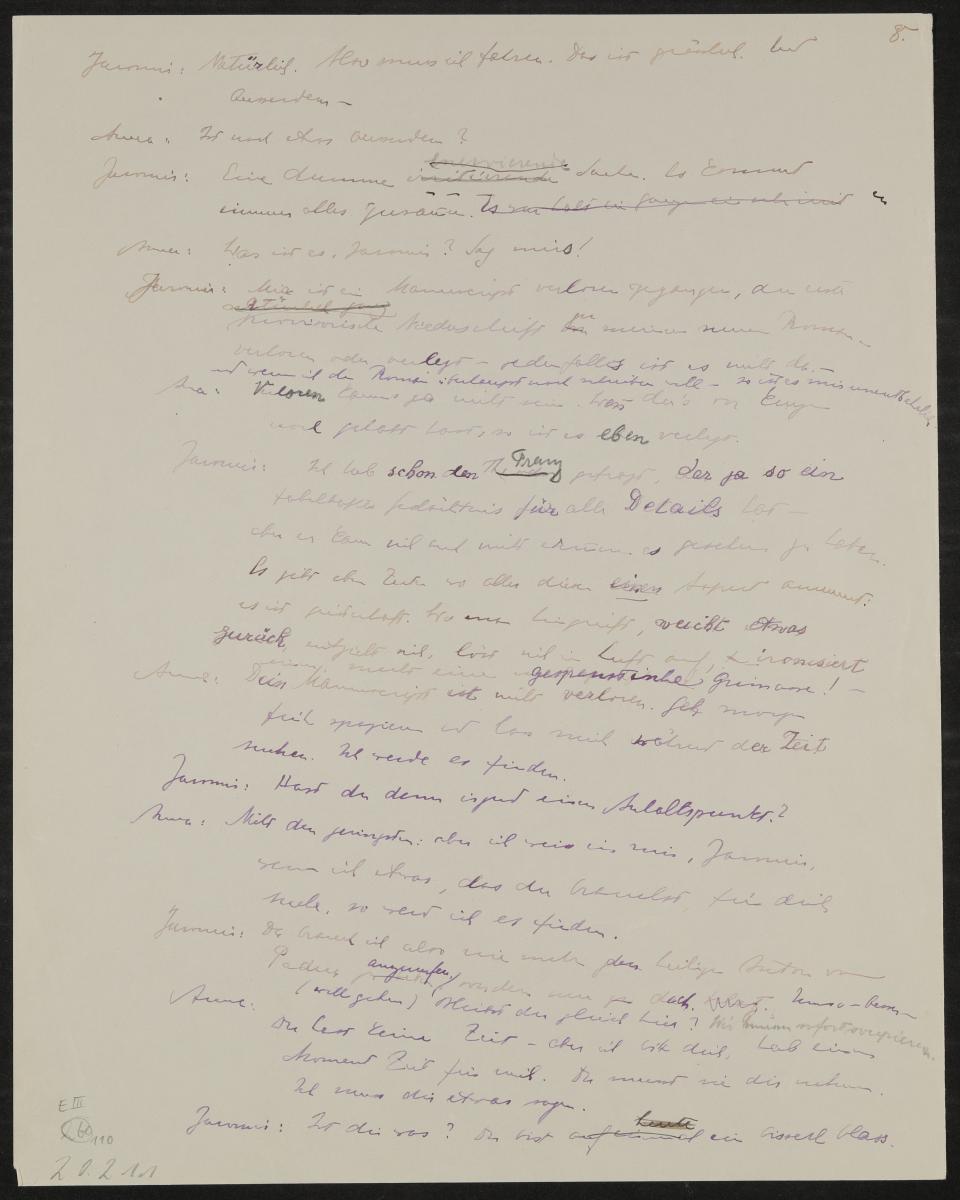 8.
Jaromir: Natürlich. Also muss ich fahren. Das ist grässlich. Und
Ausserdem –
Anna: Ist noch etwas ausserdem?
Jaromir: Eine dumme irritierende Sache. Es kommt
immer alles zusamm. Es
Anna: Was ist es, Jaromir? Sag mirs!
Jaromir: Mir ist ein Manuscript verloren gegangen, die erste
skizzirische Niederschrift zu meinem neuen Roman –
verloren oder verlegt – jedenfalls ist es nicht da. –
und wenn ich den Roman überhaupt noch schreiben will – so ist es mir unentbehrlich
Anna: Verloren kanns ja nicht sein. Wenn du's vor Kurzem
noch gehabt hast, so ist es eben verlegt.
Jaromir: Ich hab schon den Franz gefragt, der ja so ein
fabelhaftes Gedächtnis für alle Details hat –
aber er kann sich auch nicht erinnern es gesehen zu haben.
Es gibt eben Zeiten wo alles diesen einen Aspect annimmt:
es ist geisterhaft. Wo man hingreift, weicht etwas
zurück, entzieht sich, löst sich in Luft auf, ironisiert
einen, macht eine gespenstische Grimasse! –
Anna: Dein Manuscript ist nicht verloren. Geh morgen
früh spazieren und lass mich während der Zeit
suchen. Ich werde es finden.
Jaromir: Hast du denn irgend einen Anhaltspunkt?
Anna: Nicht den geringsten: aber ich weiss es, Jaromir,
wenn ich etwas, das du brauchst, für dich
suche, so werd ich es finden.
Jaromir: Da brauch ich also nie mehr den heiligen Anton von
Padua anzurufen, sondern nur zu dir.
(will gehen) Wir müssen sofort soupieren.
Anna: Bleibst du gleich hier?
Du hast keine Zeit – aber ich bitt dich, hab einen
Moment Zeit für mich. Du musst sie dir nehmen.
Ich muss dir etwas sagen.
Jaromir: Ist dir was? Du bist auf einmal heute ein bisserl blass.
E III
110
20.2